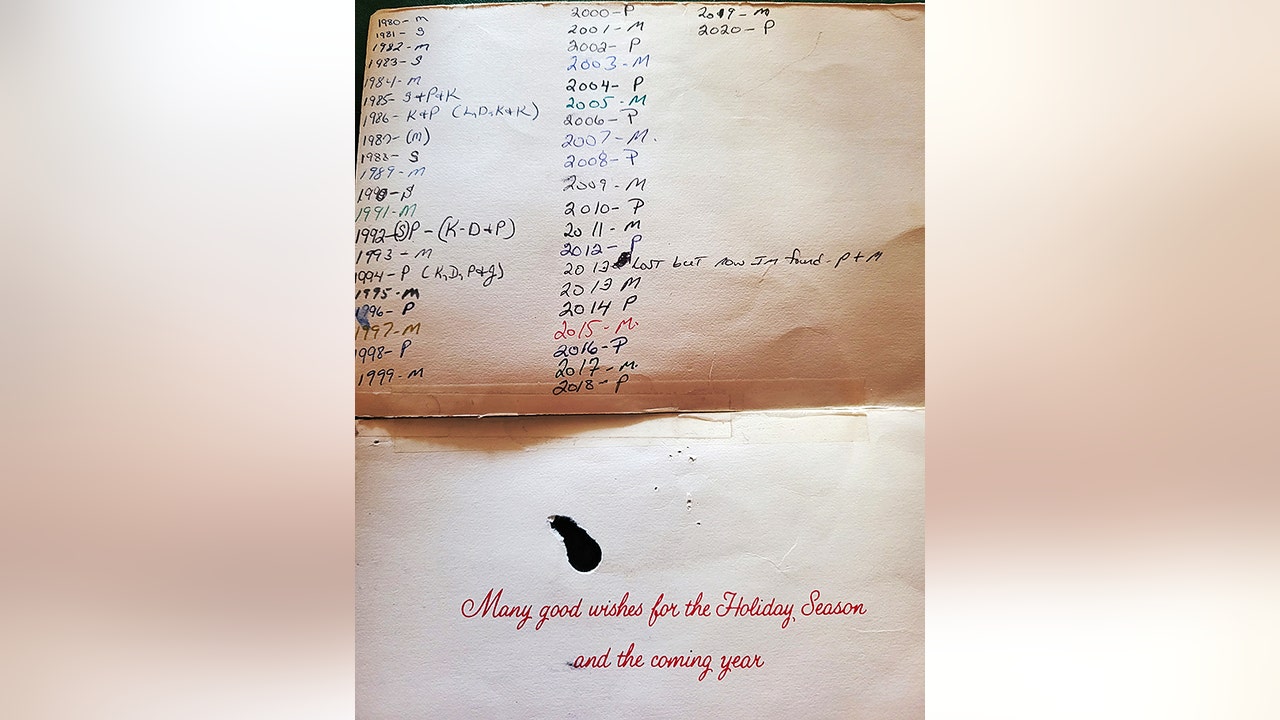 1980 - M
1981 - S
1982 - M
1983 - S
1984 - M
1985 - S + P + K
1986 - K + P (L, D, K + K)
1987 - (M)
1988 - S
1989 - M
1990 - S
1991 - M
1992 - (S) P - (K - D + P)
1993 - M
1994 - P (K, D, P + J)
1995 - M
1996 - P
1997 - M
1998 - P
1999 - M
2000 - P
2001 - M
2002 - P
2003 - M
2004 - P
2005 - M
2006 - P
2007 - M.
2008 - P
2009 - M
2010 - P
2011 - M
2012 - P
2013 Lost but now I'm found - P + M
2013 M
2014 P
2015 - M.
2016 - P
2017 - M.
2018 - P
2019 - M
2020 - P
Many good wishes for the Holiday Season
and the coming year